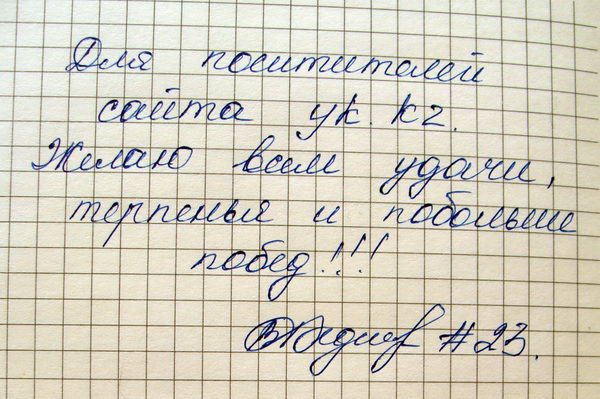 Для поситителей
сайта ук. кг.
Желаю всем удачи,
терпенья и побольше
побед!!!
#23.